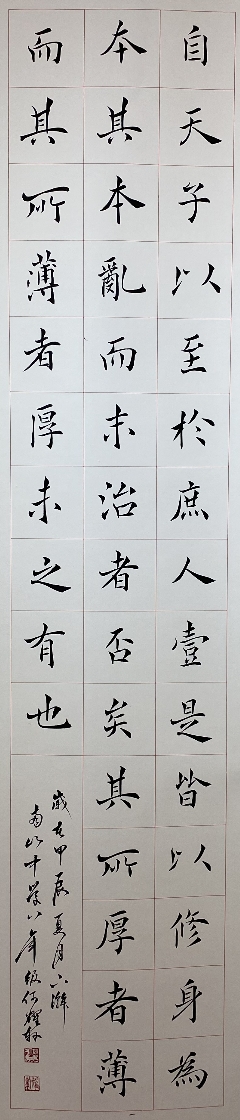 自天子以至於庶人壹是皆以修身為
本其本亂而末治者否矣其所厚者薄
而其所薄者厚未之有也
歲在甲辰夏月